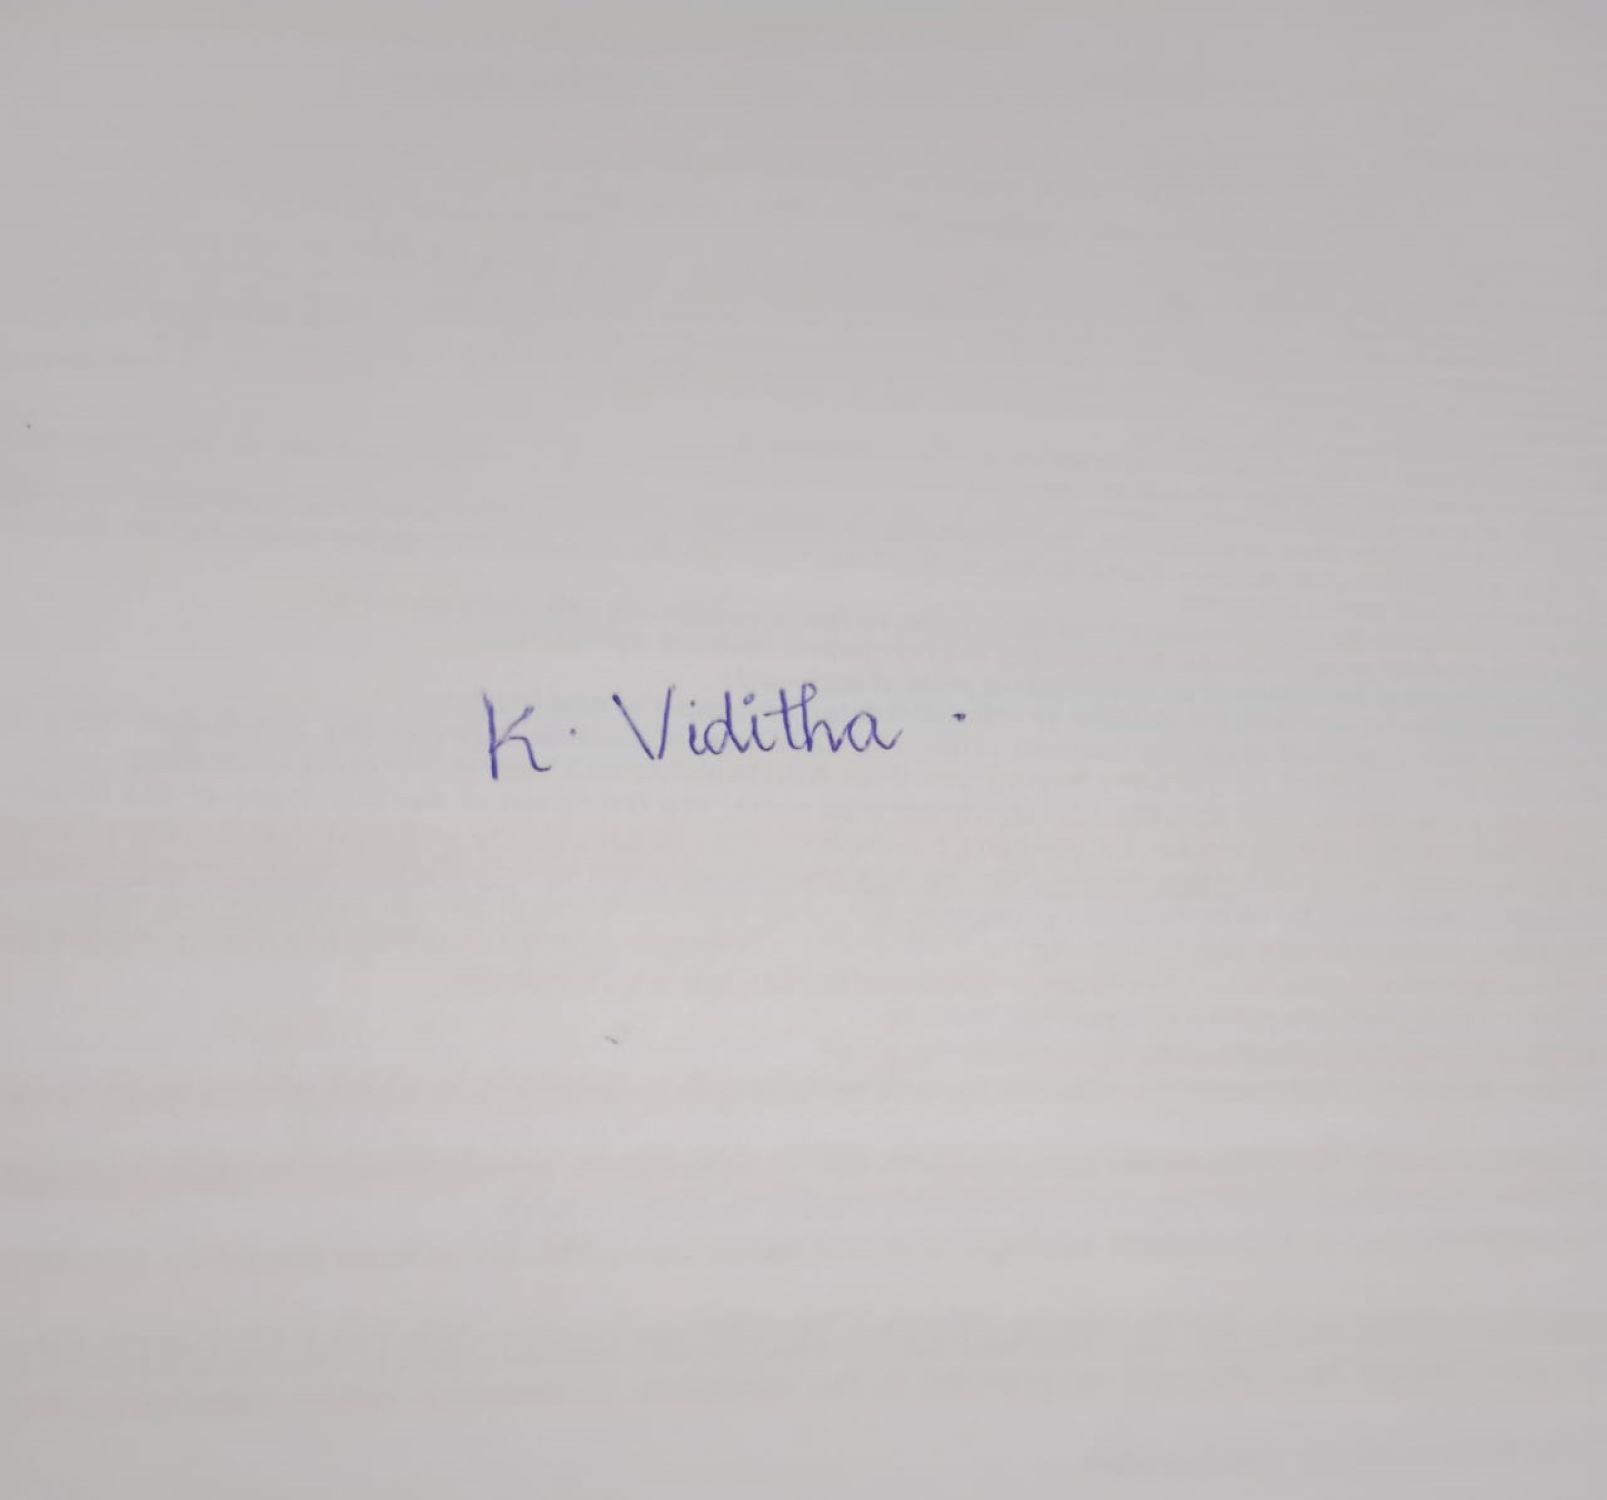 K. Viditha.